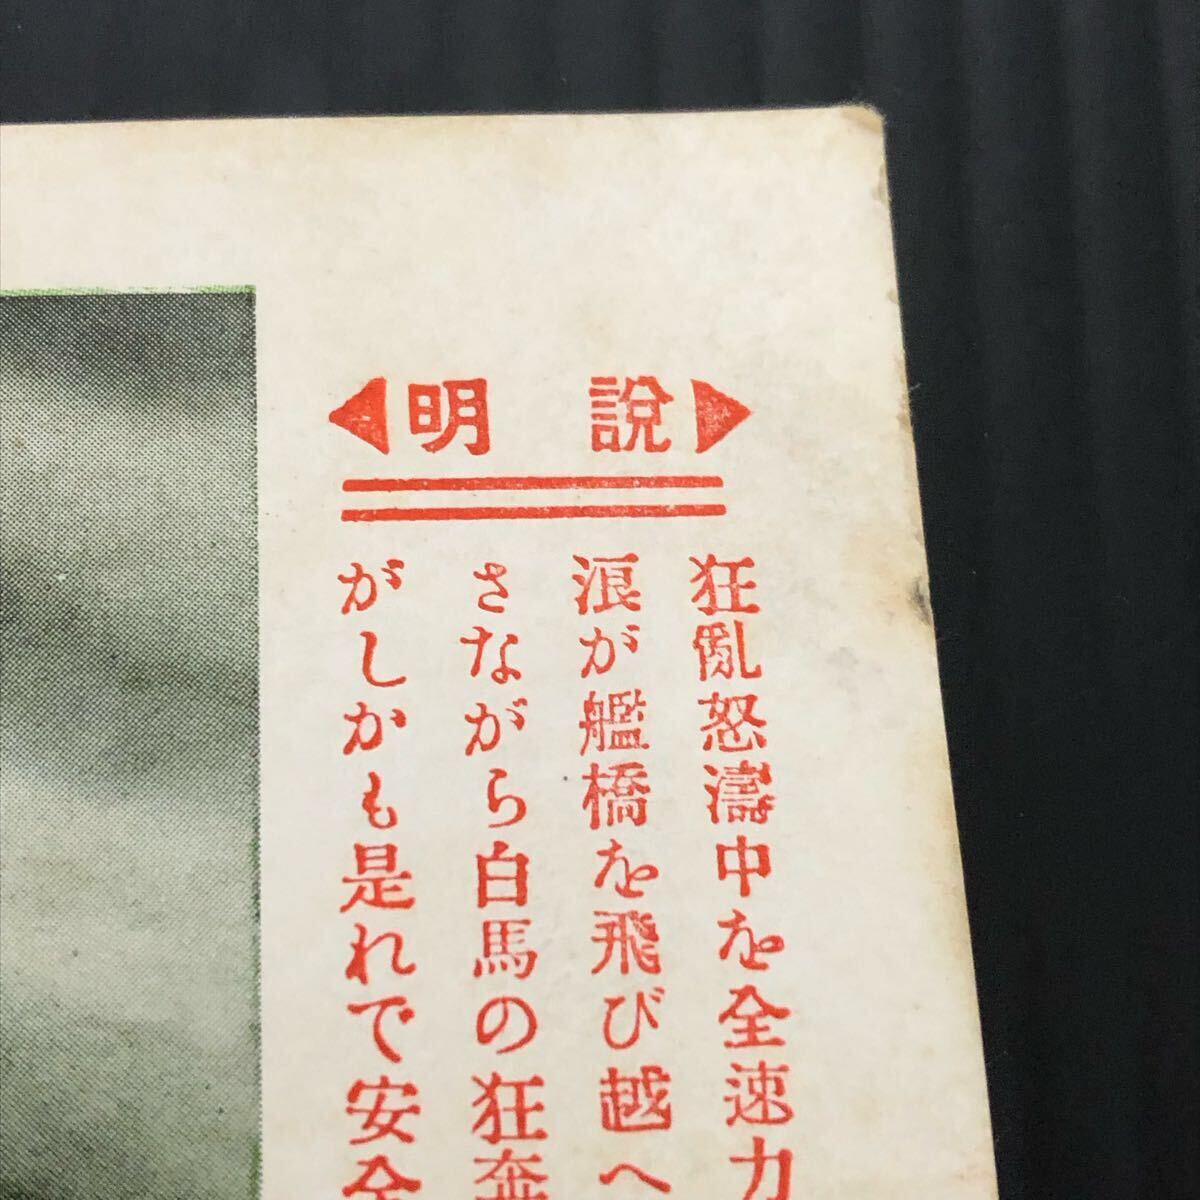 説明
狂亂怒濤中を全速力
浪が艦橋を飛び越へ
さながら白馬の狂奔
がしかも是れで安全